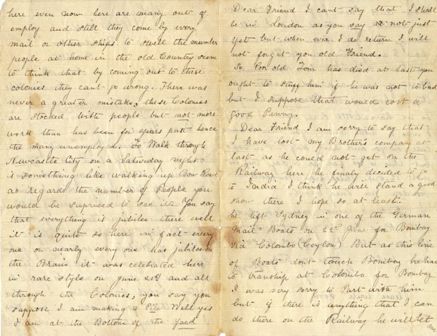 here even now here are many out of
employ and still they come by every
mail or other ships to swell the number
people at home in the old Country seem
to think that by coming out to these
colonies they cant go wrong. There was
never a greater mistake, these Colonies
are stocked with people but not more
work than has been for years past hence
the many unemployed. To Walk through
Newcastle City on a Saturday night
is something like walking up Bow
as regards the number of People you
would be surprised to see it. You say
that everything is jubilee there well
it is quite so here in fact every
one or nearly every one has jubilee on
the Brain it was celebrated here
in rare style on June and all
through the Colonies, you say you
suppose I am making a Well yes
I am at the Bottom of the
Dear Friend I cant say that I shall
be in London as you say not just
yet but when ever I do return I will
not forget you old Friend.
So Poor old Tom has died at last you
ought to him if he was not
but I suppose that would cost a
good Penny.
Dear Friend I am sorry to say that
I have lost my Brother's company at
last as he could not get on the
Railway here he finally decided to go
to India I think he will stand a good
show there I hope so at least.
he left Sydney in one of the German
Mail Boats on 22nd June for Bombay
via Colombo (Ceylon) But as this line
of Boats don't touch Bombay he has
to tranship at Colombo for Bombay
I was very sorry to Part with him
but if there is anything that I can
do there on the Railway he will let